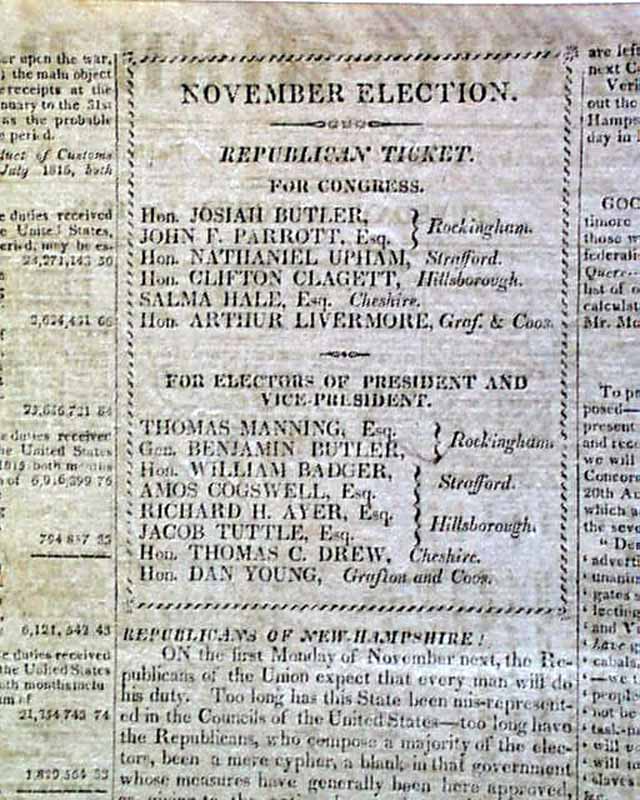 er upon the war,
the main object
receipts at the
nuary to the 31st
as the probable
e period.
duct of Customs
July 1815, both
e duties received
e United States,
eriod, may be es-
24,271,143 50
23,636,721 84
e duties received
he United States
1815 both months
of 6,916,399 76
6,121,542 43
e duties received
the United States
oth months inclu
um of
21,354,743 74
NOVEMBER ELECTION.
REPUBLICAN TICKET.
FOR CONGRESS.
Hon. JOSIAH BUTLER,
JOHN F. PARROTT, Esq. } Rockingham.
Hon. NATHANIEL UPHAM, Strafford.
Hon. CLIFTON CLAGETT, Hillsborough.
SALMA HALE, Esq. Cheshire.
Hon. ARTHUR LIVERMORE, Graf. & Coos.
FOR ELECTORS OF PRESIDENT AND
VICE-PRESIDENT.
THOMAS MANNING, Esq.
Gen. BENJAMIN BUTLER, } Rockingham.
Hon. WILLIAM BADGER,
AMOS COGSWELL, Esq. } Strafford.
RICHARD H. AYER, Esq.
JACOB TUTTLE, Esq. } Hillsborough.
Hon. THOMAS C. DREW, Cheshire.
Hon. DAN YOUNG, Grafton and Coos.
REPUBLICANS OF NEW-HAMPSHIRE!
ON the first Monday of November next, the Re-
publicans of the Union expect that every man will do
his duty. Too long has this State been mis-represent-
ed in the Councils of the United States—too long have
the Republicans, who compose a majority of the elec-
tors, been a mere cypher, a blank in that government
whose measures have generally been here approved,
are left
next C
Veri
out the
Hamps
day in
GOO
timore
those w
federali
Quere
list of o
calculat
Mr. Mc
To pr
posed—
present
and rece
we will
Concord
20th A
which a
the seve
"De
adverti
unanim
gates s
lecting
and V
have g
cabala
—we t
people
not be
task-m
will vo
will to
slaves